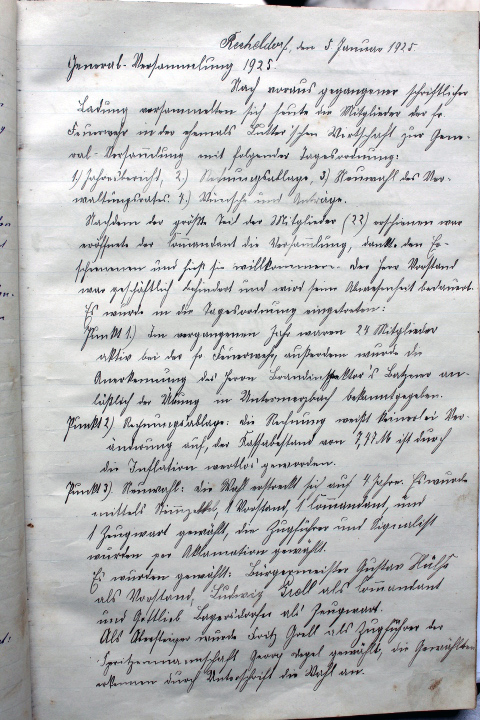 Recheldorf, den 5 Januar 1925.
General-Versammlung 1925.
Nach voraus gegangener schriftlicher
Ladung versammelten sich heute die Mitglieder der fr.
Feuerwehr in der ehemals Lutter'schen Wirtschaft zur Gene-
ral-Versammlung mit folgender Tagesordnung:
1.) Jahresbericht, 2.) Rechnungsablage, 3.) Neuwahl des Ver-
waltungsrates. 4.) Wünsche und Anträge.
Nachdem der größte Teil der Mitglieder (22) erschienen war
eröffnete der Comandant die Versammlung, dankte den Er-
schienenen und hieß sie willkommen. Der Herr Vorstand
war geschäftlich behindert und wird seine Abwesenheit bedauert.
Es wurde in die Tagesordnung eingetreten:
Punkt 1.) Im vergangenen Jahr waren 24 Mitglieder
aktiv bei der fr Feuerwehr, außerdem wurde die
Anerkennung des Herrn Brandinspektor's an-
läßlich der Übung in Untermerzbach bekanntgegeben.
Punkt 2.) Rechnungsablage: die Rechnung weißt keinerlei Ver-
änderung auf, der Kassabestand von ist durch
die Inflation wertlos geworden.
Punkt 3.) Neuwahl: die Wahl erstreckt sich auf 4 Jahre. Es wurde
mittels Stimmzettel, 1 Vorstand, 1 Commandant, und
1 Zeugwart gewählt, die Zugführer und Signalist
wurden per Aklamation gewählt.
Es wurden gewählt: Bürgermeister Gustav
als Vorstand, Ludwig als Commandant
und Gottlieb Lagersdorfer als Zeugwart.
Als Obersteiger wurde Fritz als Zugführer der
Spritzenmannschaft Georg gewählt, die Gewählten
erkennen durch Unterschrift die Wahl an.